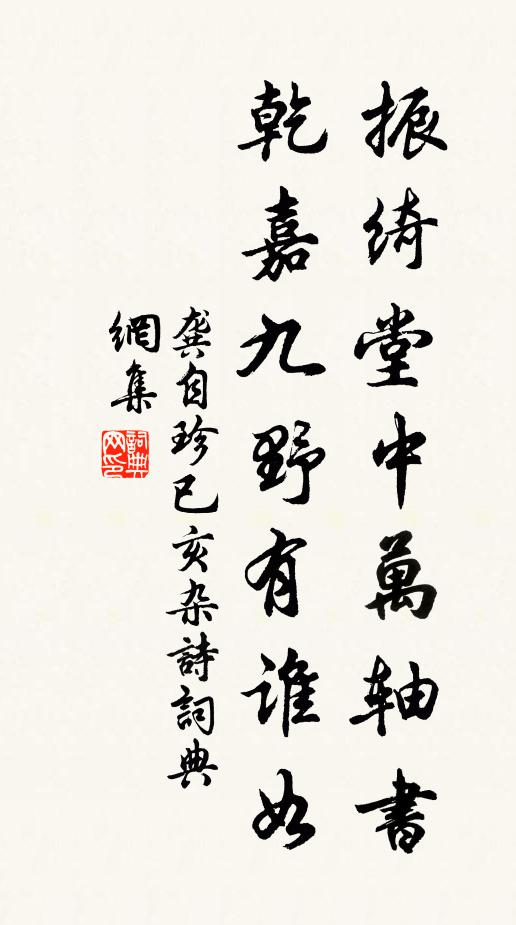 振綺堂中萬軸書
乾嘉九野有誰如
龔自珍已亥杂詩詞典
網集
詞典网印